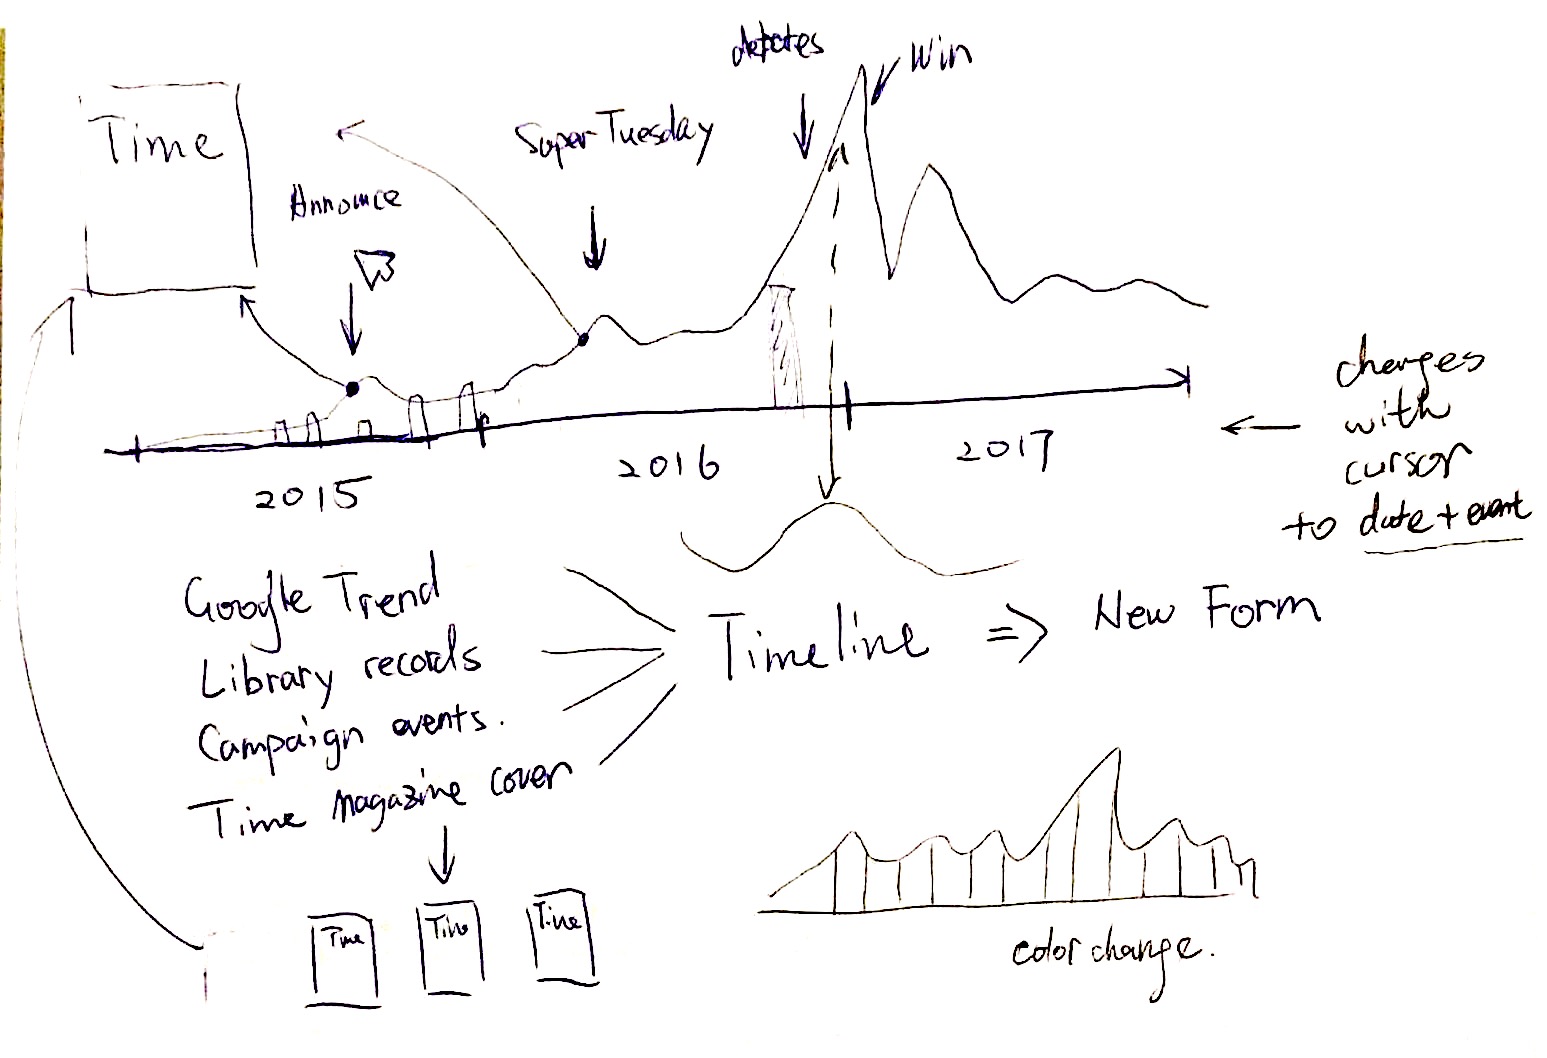 debates
Win
Time
Super Tuesday
Announce
changes
with
cursor
to date + event
2015
2016
2017
Google Trend
Library records
Campaign events.
Time Magazine cover
Timeline => New Form
Time
Time
Time
color change.